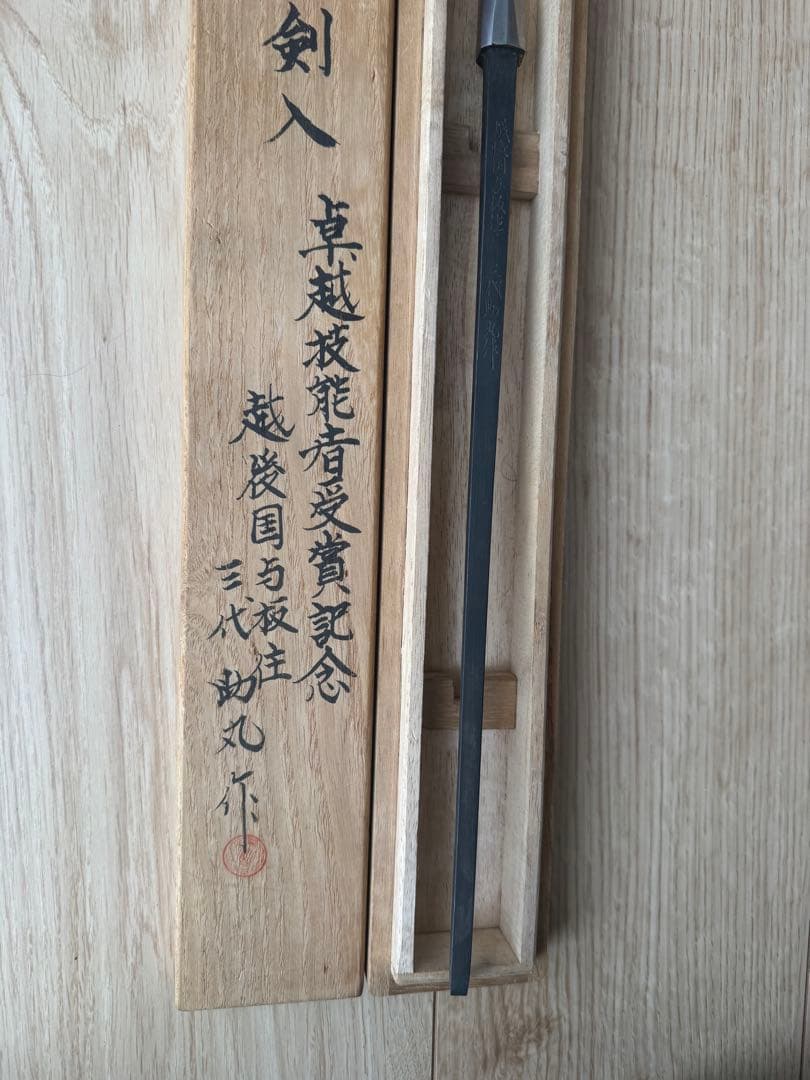 剣入
卓越技能者受賞記念
越後国与板住
三代助丸作